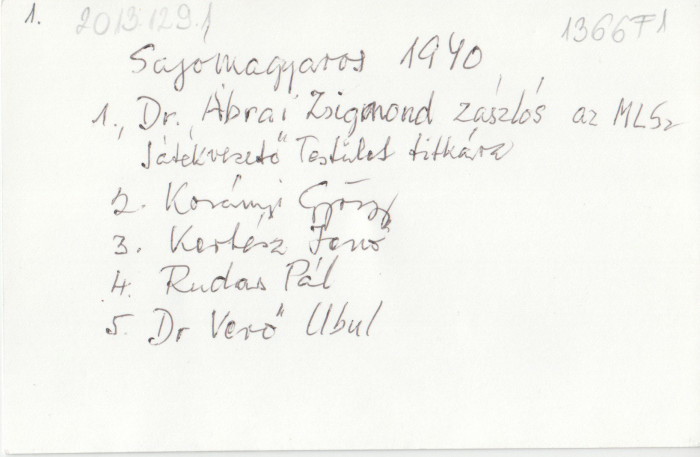 1.
2013.129.1
1366F1
Sajómagyaros 1940
1., Dr. Ábrai Zsigmond zászlós az MLSz
Játékvezető Testület titkára
2. Korányi György
3. Kertész Jenő
4. Rudas Pál
5. Dr Verő Ubul